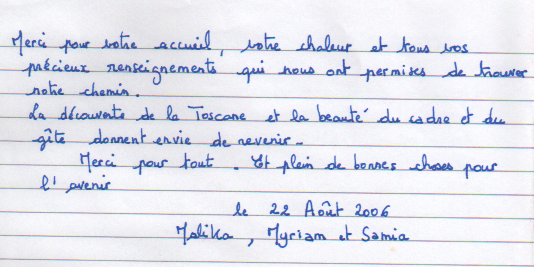 Merci pour votre accueil, votre chaleur et tous vos
précieux renseignements qui nous ont permises de trouver
notre chemin.
La découverte de la Toscane et la beauté du cadre et du
gîte donnent envie de revenir.
Merci pour tout. Et plein de bonnes choses pour
l'avenir
le 22 Août 2006
Malika, Myriam et Samia